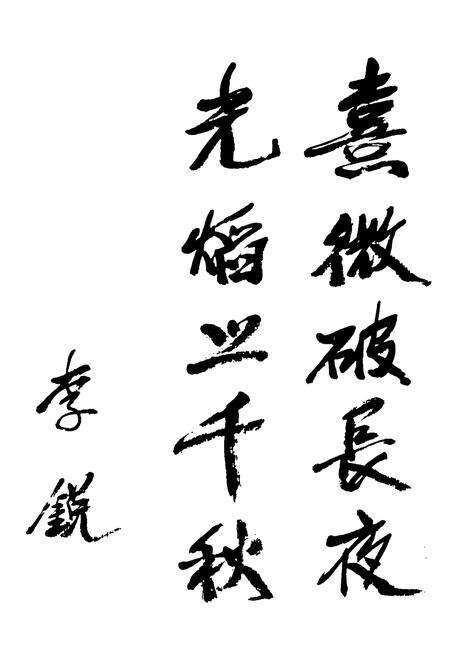 熹微破長夜
光焰千秋
李銳